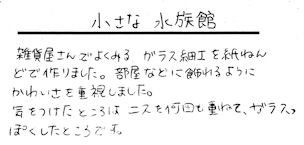 小さな 水族館
雑貨屋さんでよくみる ガラス細工を紙ねん
どで作りました。部屋などに飾れるように
かわいさを重視しました。
気をつけたところは ニスを何回も重ねて、ガラスっ
ぽくしたところです。